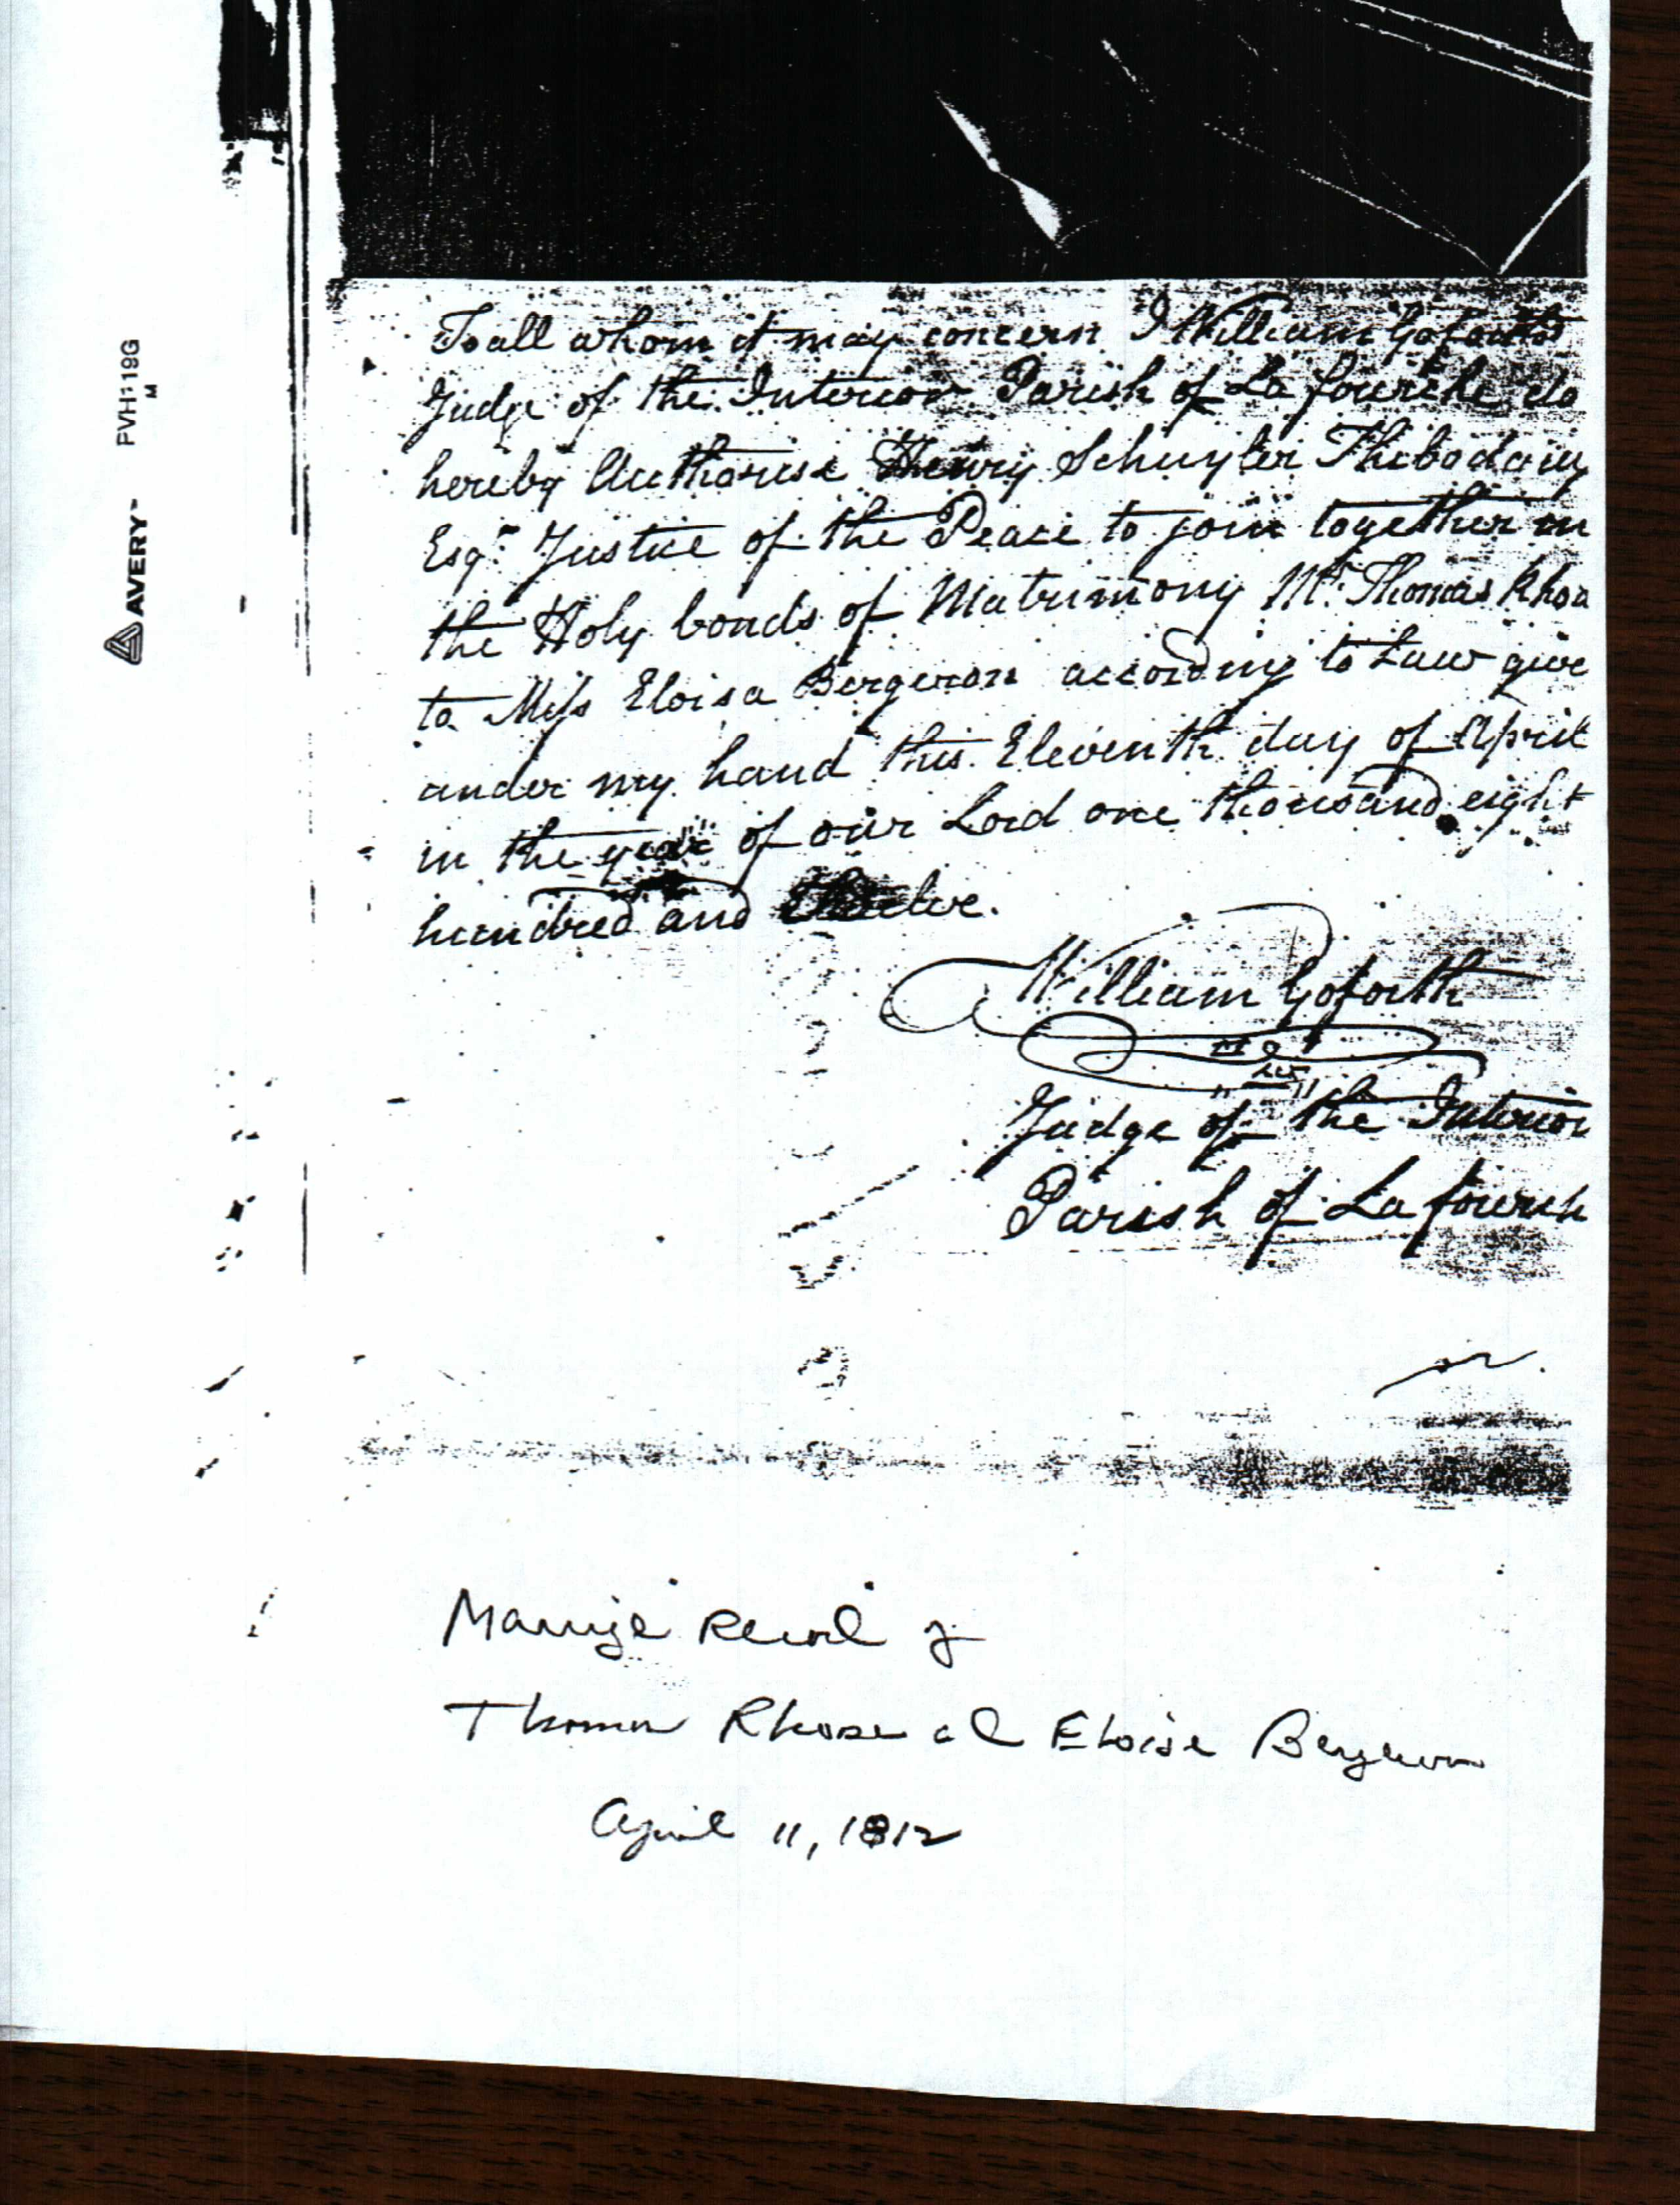 To all whom it may concern I William Goforth
Judge of the Interior Parish of La fourche do
hereby Authorise Henry Schuyler Thibodaux
Esqr. Justice of the Peace to join together in
the Holy bonds of Matrimony Mr. Thomas Rhoa
to Miss Eloisa Bergeron according to Law give
under my hand this Eleventh day of April
in the year of our Lord one thousand eight
hundred and Twelve.
William Goforth
Judge of the Interior
Parish of La fourch
Marriage Record of
Thomas Rhose and Eloise Bergeron
April 11, 1812
AVERY™ PVH119G
M